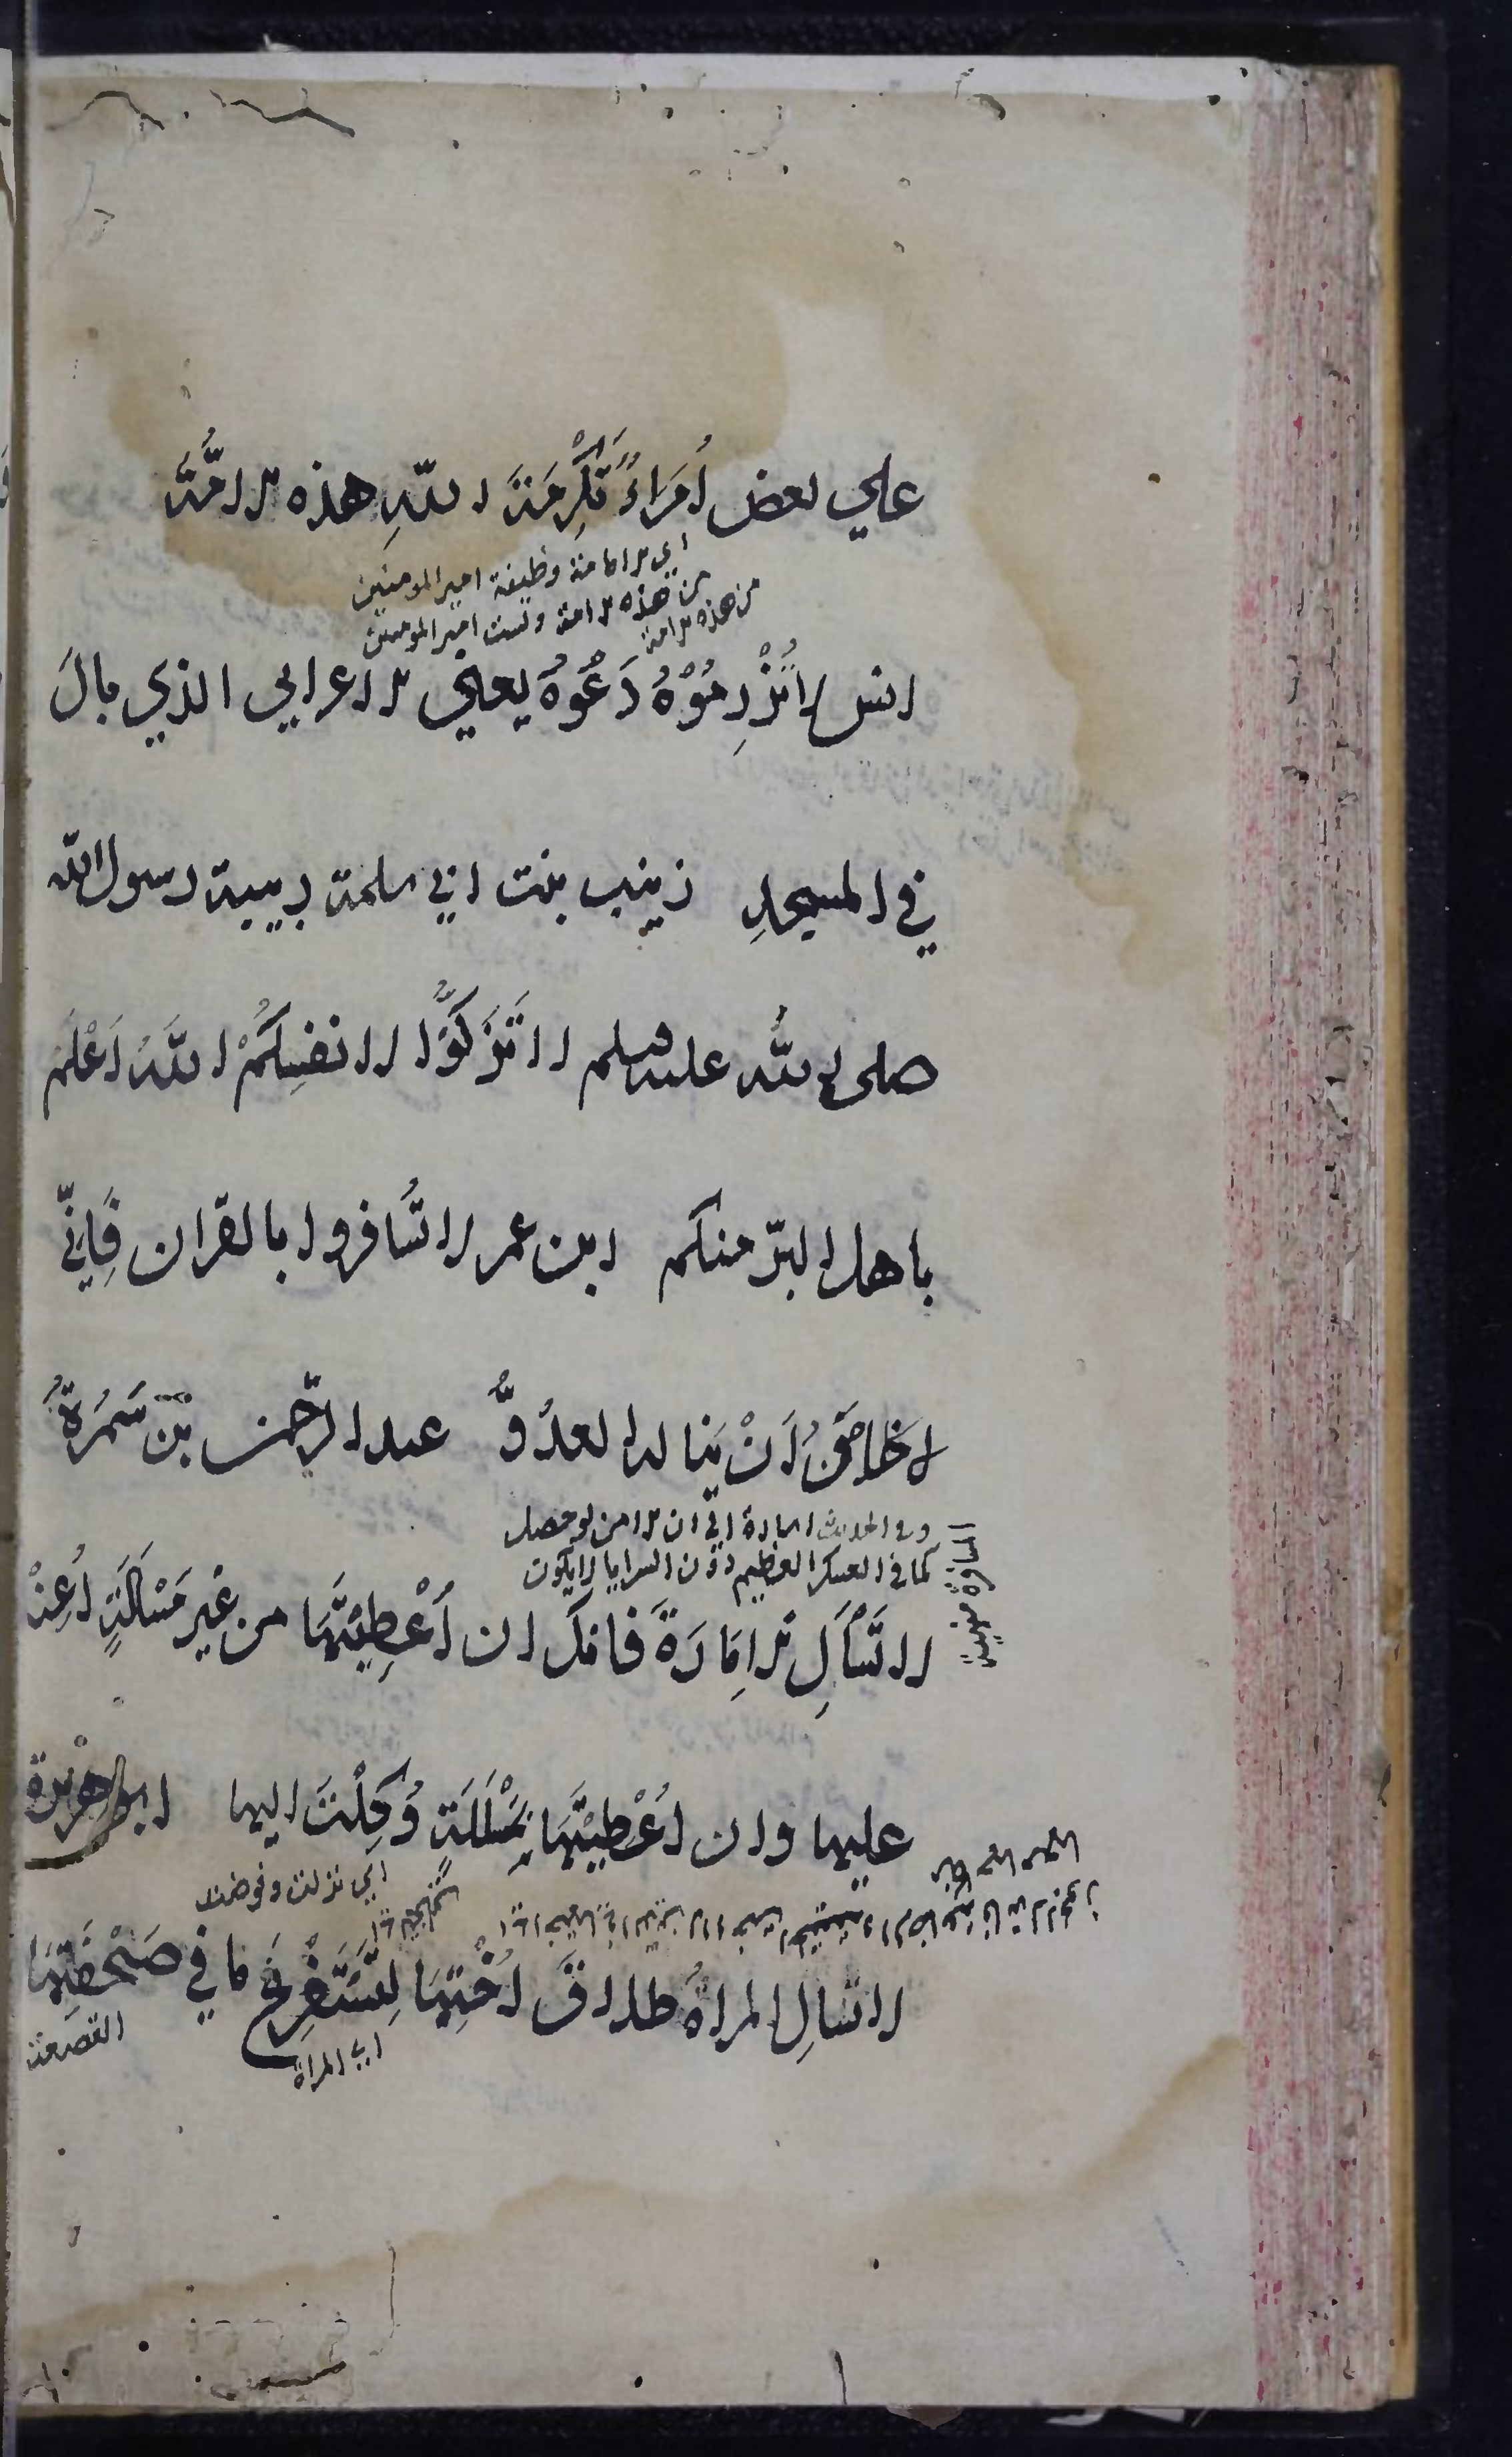 علي بعض أُمَرَاءُ تَكْرِمَةَ اللّهِ هذه الامَّةَ
اي الامامة وظيفة امير المومنين
من هذه الامة وليست امير المومنين
من هذه الامة
انس لا تُزْرِمُوْهُ دَعُوهُ يعني الاعرابي الذي بالَ
في المسجدِ زينب بنت ابي سلمة ربيبة رسول الله
صلى الله عليه وسلم لا تُزَكُّوا انفسَكُمْ اللّهُ اَعْلَم
باهل البرّ منكم ابن عمر لا تُسَافروا بالقران فَاِنّي
لا اخافُ اَنْ يَنالهُ العدُوُّ عبد الرّحمن بْن سَمُرَةُ
وفي الحديث اشارة الي ان الامن لو حصل
كما في العسكر العظيم دون السرايا لا يكون
المسافرة منهية
لا تَسْأَلِ الاِمَارَةَ فانك ان اُعْطِيْتَهَا من غير مَسْأَلَةٍ اُعِنْتَ
عليها وان اُعْطِيْتَهَا بِمَسْأَلَةٍ وُكِلْتَ اليها ابو هريرة
اي نزلت وفوضت
لا تسألِ المراةُ طلاقَ اُخْتِهَا لِتَسْتَفْرِغَ مَا في صَحْفَتِهَا
اي المراة
القصعة